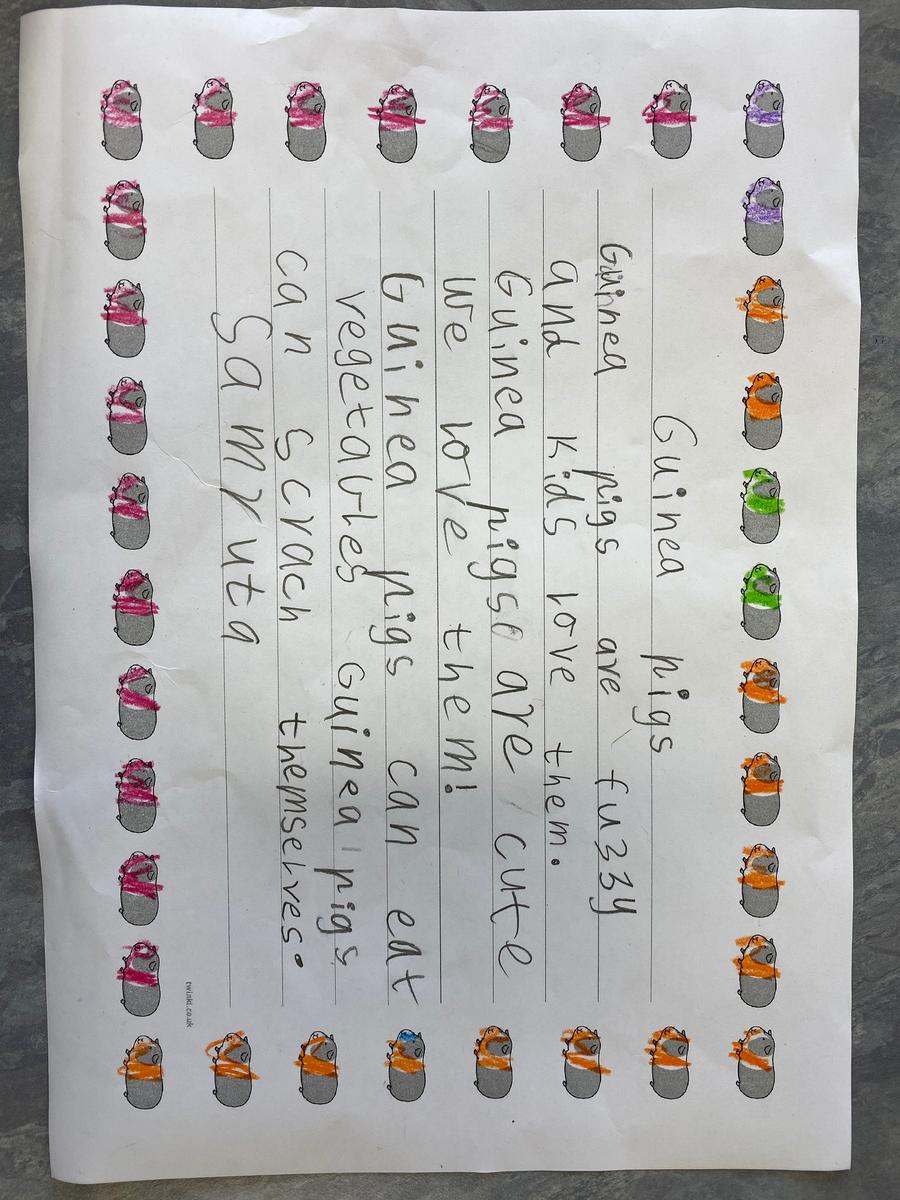 Guinea pigs
Guinea pigs are fuzzy
and kids love them.
Guinea pigs are cute
we love them!
Guinea pigs can eat
vegetables Guinea pigs
can scrach themselves.
Samruta
twinkl.co.uk